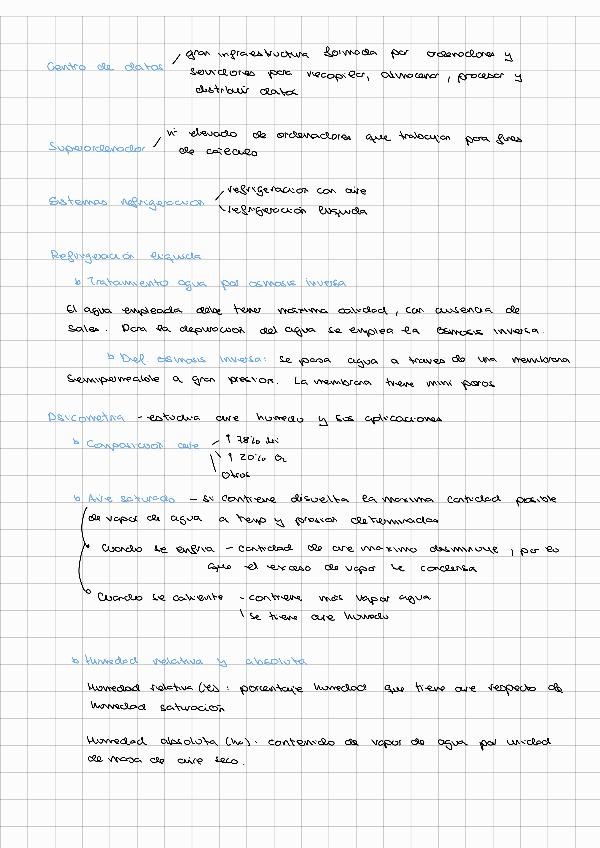 Centro de datos / gran infraestructura formada por ordenadores y
servidores para recopilar, almacenar, procesar y
distribuir datos
Superordenador / nº elevado de ordenadores que trabajan para fines
de cálculo
Sistemas refrigeración / refrigeración con aire
\ refrigeración líquida
Refrigeración líquida
↳ Tratamiento agua por osmosis inversa
El agua empleada debe tener máxima calidad, con ausencia de
sales. Para la depuración del agua se emplea la osmosis inversa.
↳ Def osmosis inversa: se pasa agua a traves de una membrana
semipermeable a gran presion. La membrana tiene mini poros
Psicometria - estudia aire humedo y sus aplicaciones
↳ Composicion aire / 78%
20% O2
otros
↳ Aire saturado - si contiene disuelta la maxima cantidad posible
de vapor de agua a temp y presion determinadas
Cuando se enfria - cantidad de aire maximo disminuye, por lo
que el exceso de vapor se condensa
Cuando se calienta - contiene mas vapor agua
\ se tiene aire humedo
↳ Humedad relativa y absoluta
Humedad relativa : porcentaje humedad que tiene aire respecto de
humedad saturacion
Humedad absoluta (ha): contenido de vapor de agua por unidad
de masa de aire seco.